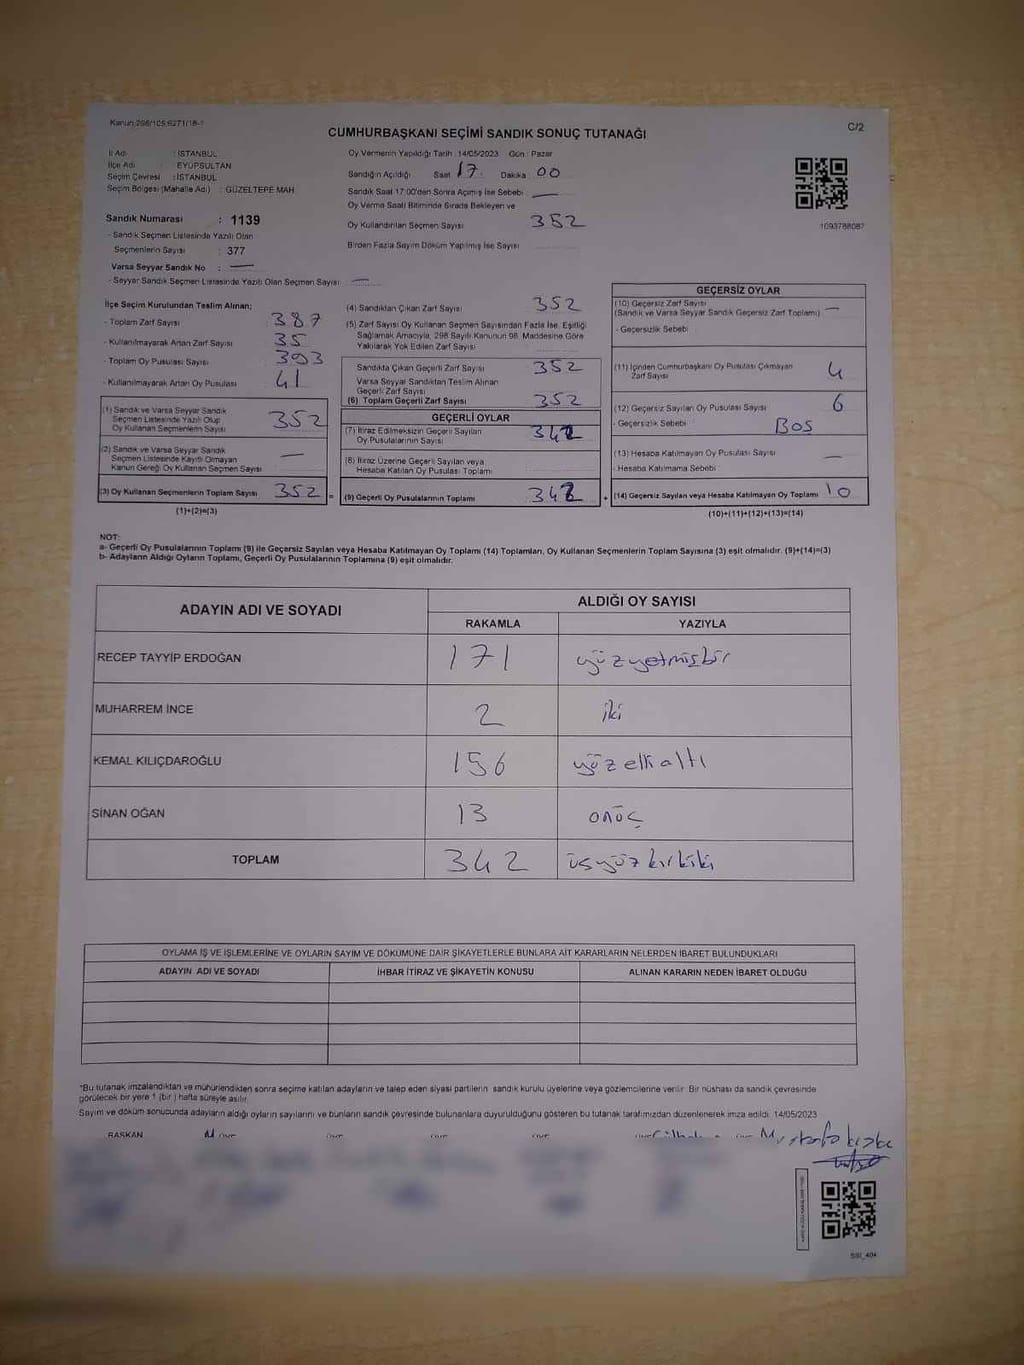 Kanun:298/105,6271/18-1
CUMHURBAŞKANI SEÇİMİ SANDIK SONUÇ TUTANAĞI
C/2
İl Adı : İSTANBUL
İlçe Adı : EYÜPSULTAN
Seçim Çevresi : İSTANBUL
Seçim Bölgesi (Mahalle Adı) : GÜZELTEPE MAH
Oy Vermenin Yapıldığı Tarih : 14/05/2023 Gün : Pazar
Sandığın Açıldığı Saat 17 Dakika 00
Sandık Saat 17:00'den Sonra Açılmış İse Sebebi
Oy Verme Saati Bitiminde Sırada Bekleyen ve
Oy Kullandırılan Seçmen Sayısı 352
Birden Fazla Sayım Döküm Yapılmış İse Sayısı
1093788087
Sandık Numarası : 1139
- Sandık Seçmen Listesinde Yazılı Olan
Seçmenlerin Sayısı : 377
Varsa Seyyar Sandık No : —
- Seyyar Sandık Seçmen Listesinde Yazılı Olan Seçmen Sayısı : —
İlçe Seçim Kurulundan Teslim Alınan;
- Toplam Zarf Sayısı 387
- Kullanılmayarak Artan Zarf Sayısı 35
- Toplam Oy Pusulası Sayısı 393
- Kullanılmayarak Artan Oy Pusulası 41
(1) Sandık ve Varsa Seyyar Sandık
Seçmen Listesinde Yazılı Olup
Oy Kullanan Seçmenlerin Sayısı 352
(2) Sandık ve Varsa Seyyar Sandık
Seçmen Listesinde Kayıtlı Olmayan
Kanun Gereği Oy Kullanan Seçmen Sayısı —
(3) Oy Kullanan Seçmenlerin Toplam Sayısı 352
(1)+(2)=(3)
(4) Sandıktan Çıkan Zarf Sayısı 352
(5) Zarf Sayısı Oy Kullanan Seçmen Sayısından Fazla İse, Eşitliği
Sağlamak Amacıyla, 298 Sayılı Kanunun 98. Maddesine Göre
Yakılarak Yok Edilen Zarf Sayısı
Sandıkta Çıkan Geçerli Zarf Sayısı 352
Varsa Seyyar Sandıktan Teslim Alınan
Geçerli Zarf Sayısı
(6) Toplam Geçerli Zarf Sayısı 352
GEÇERLİ OYLAR
(7) İtiraz Edilmeksizin Geçerli Sayılan
Oy Pusulalarının Sayısı 342
(8) İtiraz Üzerine Geçerli Sayılan veya
Hesaba Katılan Oy Pusulası Toplamı
(9) Geçerli Oy Pusulalarının Toplamı 342
GEÇERSİZ OYLAR
(10) Geçersiz Zarf Sayısı
(Sandık ve Varsa Seyyar Sandık Geçersiz Zarf Toplamı) —
- Geçersizlik Sebebi
(11) İçinden Cumhurbaşkanı Oy Pusulası Çıkmayan
Zarf Sayısı 4
(12) Geçersiz Sayılan Oy Pusulası Sayısı 6
- Geçersizlik Sebebi BOS
(13) Hesaba Katılmayan Oy Pusulası Sayısı —
- Hesaba Katılmama Sebebi
(14) Geçersiz Sayılan veya Hesaba Katılmayan Oy Toplamı 10
(10)+(11)+(12)+(13)=(14)
NOT:
a- Geçerli Oy Pusulalarının Toplamı (9) ile Geçersiz Sayılan veya Hesaba Katılmayan Oy Toplamı (14) Toplamları, Oy Kullanan Seçmenlerin Toplam Sayısına (3) eşit olmalıdır. (9)+(14)=(3)
b- Adayların Aldığı Oyların Toplamı, Geçerli Oy Pusulalarının Toplamına (9) eşit olmalıdır.
ADAYIN ADI VE SOYADI ALDIĞI OY SAYISI
RAKAMLA YAZIYLA
RECEP TAYYİP ERDOĞAN 171 yüzyetmişbir
MUHARREM İNCE 2 iki
KEMAL KILIÇDAROĞLU 156 yüzellialtı
SİNAN OĞAN 13 onüç
TOPLAM 342 üçyüzkırkiki
OYLAMA İŞ VE İŞLEMLERİNE VE OYLARIN SAYIM VE DÖKÜMÜNE DAİR ŞİKAYETLERLE BUNLARA AİT KARARLARIN NELERDEN İBARET BULUNDUKLARI
ADAYIN ADI VE SOYADI İHBAR İTİRAZ VE ŞİKAYETİN KONUSU ALINAN KARARIN NEDEN İBARET OLDUĞU
*Bu tutanak imzalandıktan ve mühürlendikten sonra seçime katılan adayların ve talep eden siyasi partilerin sandık kurulu üyelerine veya gözlemcilerine verilir. Bir nüshası da sandık çevresinde
görülecek bir yere 1 (bir) hafta süreyle asılır.
Sayım ve döküm sonucunda adayların aldığı oyların sayılarını ve bunların sandık çevresinde bulunanlara duyurulduğunu gösteren bu tutanak tarafımızdan düzenlenerek imza edildi. 14/05/2023
BAŞKAN
Mustafa
SSI_404